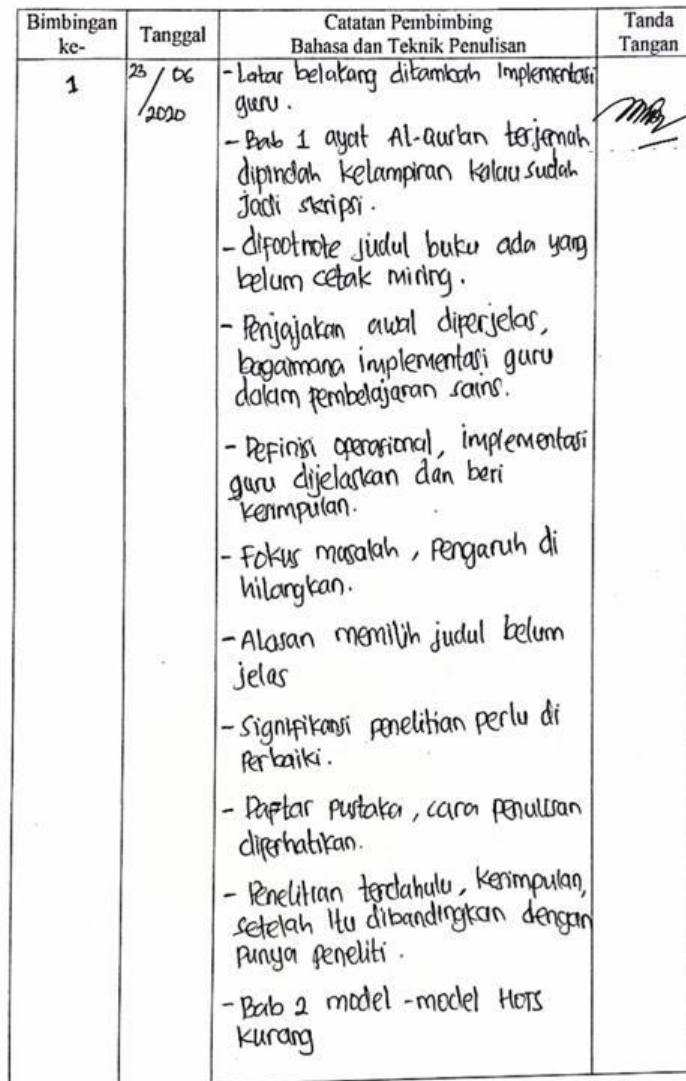 Bimbingan ke-
Tanggal
Catatan Pembimbing
Bahasa dan Teknik Penulisan
Tanda Tangan
1
23 / 06
/2020
- Latar belakang ditambah Implementasi
guru.
- Bab 1 ayat Al-Qur'an terjemah
dipindah kelampiran kalau sudah
jadi skripsi.
- difootnote judul buku ada yang
belum cetak miring.
- Penjajakan awal diperjelas,
bagaimana implementasi guru
dalam pembelajaran sains.
- Definisi operasional, implementasi
guru dijelaskan dan beri
kesimpulan.
- Fokus masalah, Pengaruh di
hilangkan.
- Alasan memilih judul belum
jelas
- Signifikansi penelitian perlu di
Perbaiki.
- Daftar pustaka, cara penulisan
diperhatikan.
- Penelitian terdahulu, kesimpulan,
setelah itu dibandingkan dengan
punya peneliti.
- Bab 2 model-model HOTS
kurang